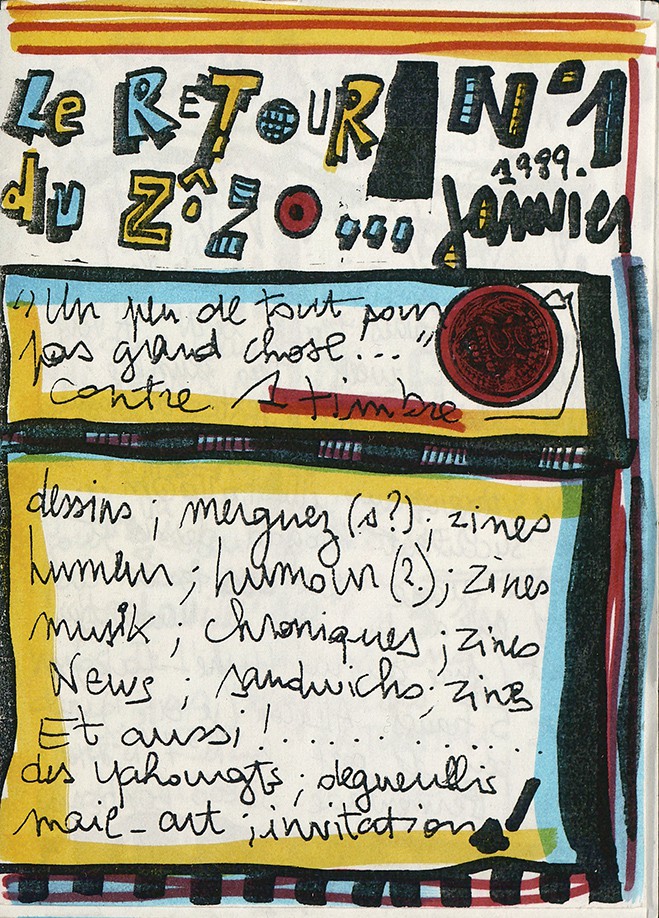 Le RETOUR N°1
1989.
du ZôZO... Janvier
"Un peu de tout pour
pas grand chose..."
contre 1 timbre
dessins ; merguez (s?) ; zines
humeur ; humour (?) ; zines
musik ; chroniques ; zines
News ; sandwichs ; zines
Et aussi !............
des yahourgts ; degueullis
mail-art ; invitation !